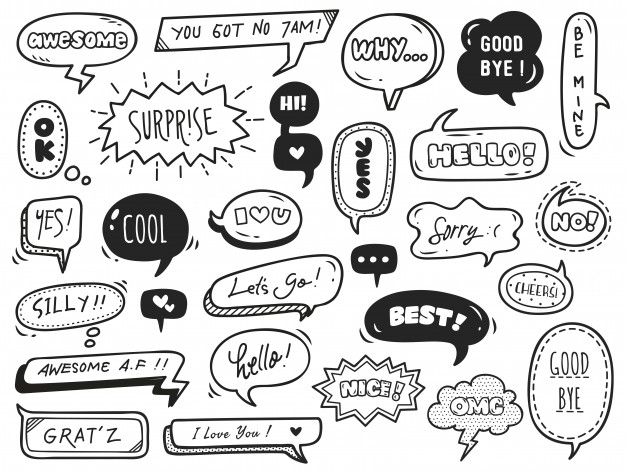 awesome
YOU GOT NO 7AM!
WHY...
GOOD
BYE!
BE MINE
OK
SURPRISE
HI!
YES
HELLO!
YES!
COOL
I♥U
Sorry :(
NO!
SILLY!!
Let's Go!
...
BEST!
CHEERS!
AWESOME A.F !!
hello!
NICE!
OMG
GOOD
BYE
GRAT'Z
I Love You! ♥